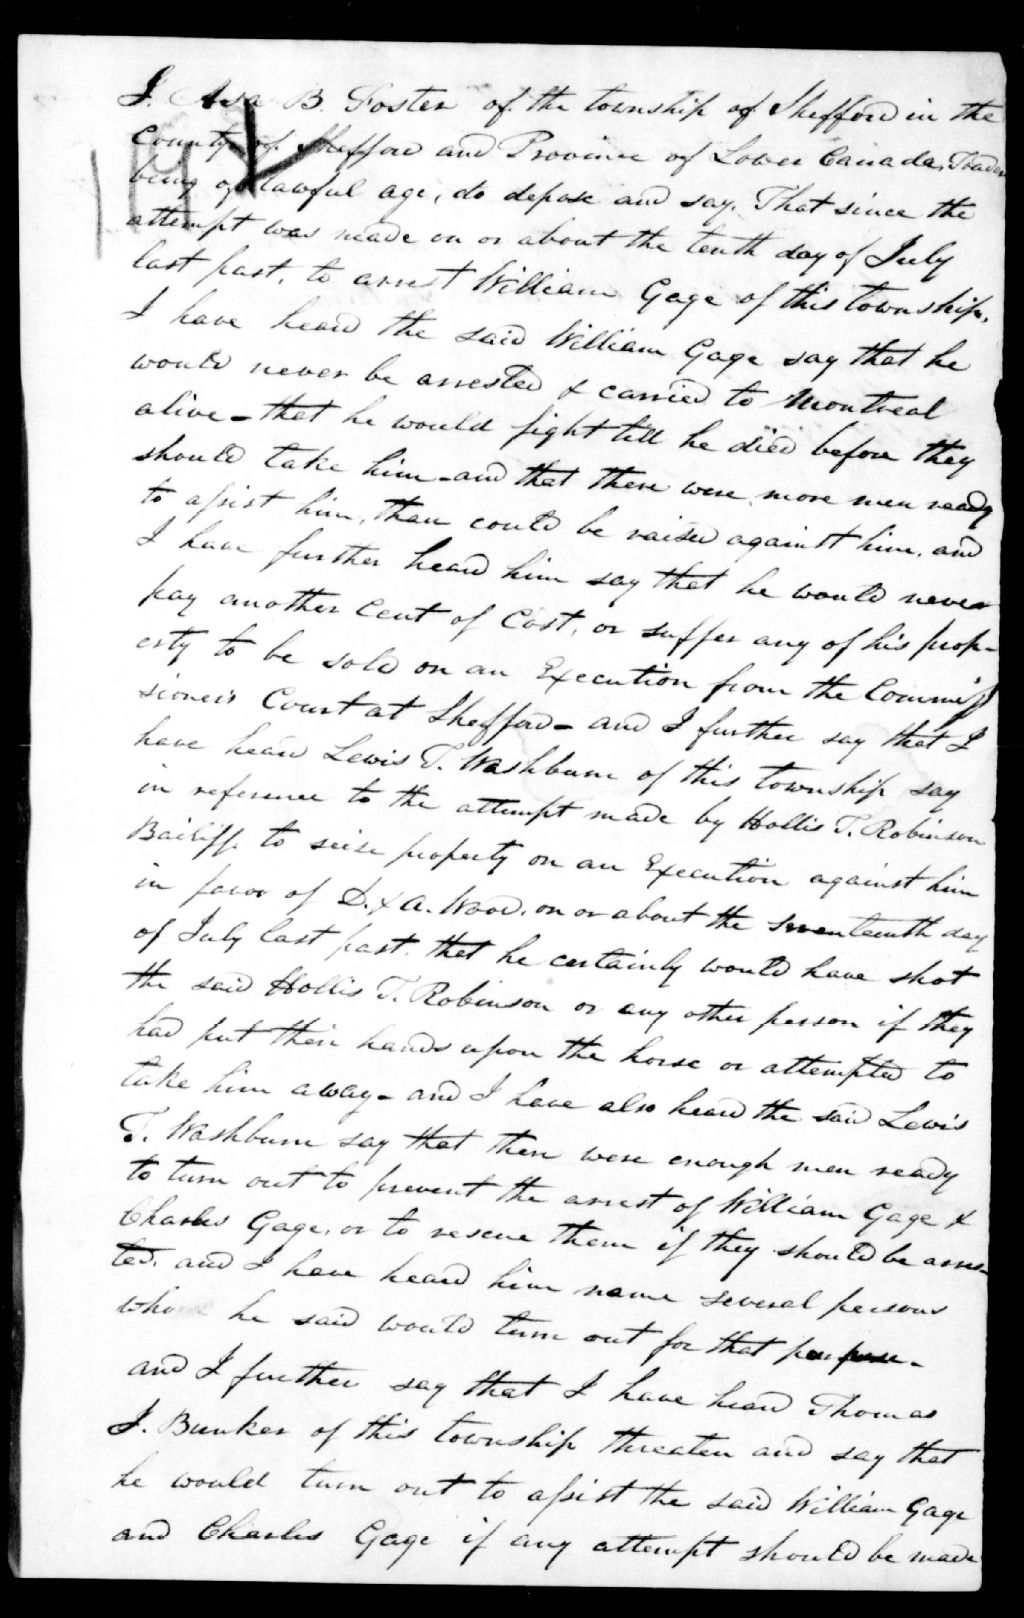 I. Asa B. Foster of the township of Shefford in the
County of Shefford and Province of Lower Canada, Trader
being of lawful age, do depose and say. That since the
attempt was made on or about the tenth day of July
last past, to arrest William Gage of this township,
I have heard the said William Gage say that he
would never be arrested & carried to Montreal
alive - that he would fight till he died before they
should take him - and that there were more men ready
to assist him, than could be raised against him, and
I have further heard him say that he would never
pay another Cent of Cost, or suffer any of his prop-
erty to be sold on an Execution from the Commis
sioner's Court at Shefford - and I further say that I
have heard Lewis T. Washburn of this township say
in reference to the attempt made by Hollis T. Robinson
Bailiff, to seise property on an Execution against him
in favor of D. & A. Wood, on or about the seventeenth day
of July last past, that he certainly would have shot
the said Hollis T. Robinson or any other person if they
had put their hands upon the horse or attempted to
take him away - and I have also heard the said Lewis
T. Washburn say that there were enough men ready
to turn out to prevent the arrest of William Gage &
Charles Gage, or to rescue them if they should be arres-
ted, and I have heard him name several persons
who he said would turn out for that purpose -
and I further say that I have heard Thomas
J. Bunker of this township threaten and say that
he would turn out to assist the said William Gage
and Charles Gage if any attempt should be made